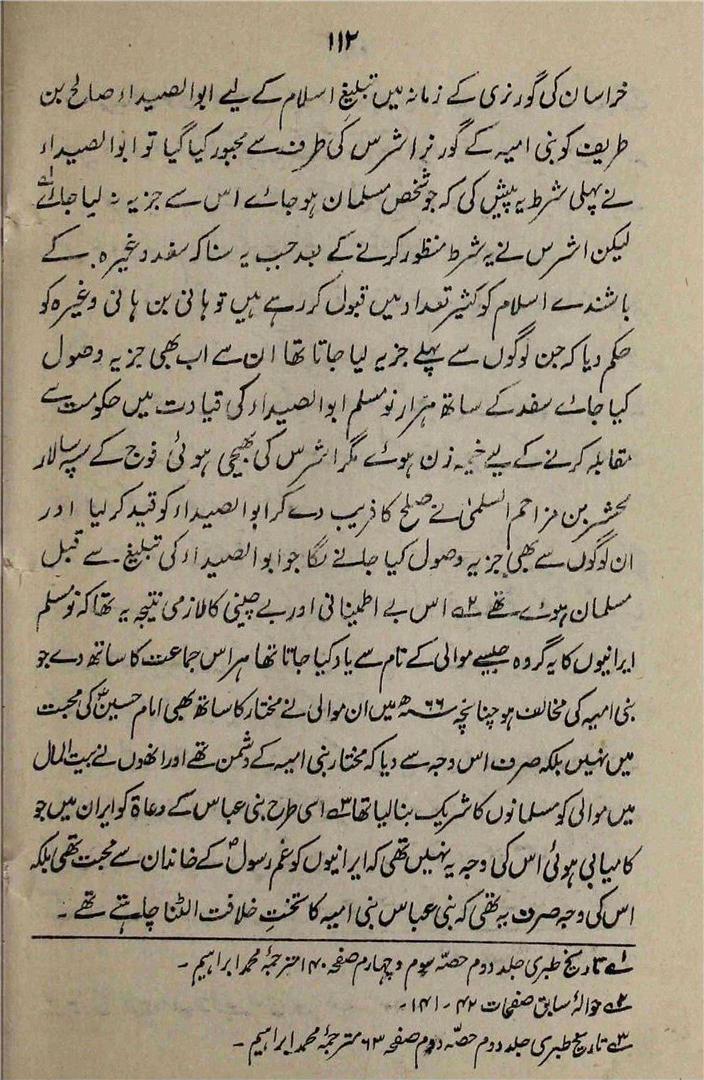 ۱۱۲
خراسان کی گورنری کے زمانہ میں تبلیغ اسلام کے لیے ابو الصیداء صالح بن
طریف کو بنی امیہ کے گورنر اشرس کی طرف سے مجبور کیا گیا تو ابو الصیداء
نے پہلی شرط یہ پیش کی کہ جو شخص مسلمان ہو جائے اس سے جزیہ نہ لیا جائے ؎۱
لیکن اشرس نے یہ شرط منظور کرنے کے بعد جب یہ سنا کہ سغد وغیرہ کے
باشندے اسلام کو کثیر تعداد میں قبول کر رہے ہیں تو ہانی بن ہانی وغیرہ کو
حکم دیا کہ جن لوگوں سے پہلے جزیہ لیا جاتا تھا ان سے اب بھی جزیہ وصول
کیا جائے سغد کے ساتھ ہزار نو مسلم ابو الصیداء کی قیادت میں حکومت سے
مقابلہ کرنے کے لیے خیمہ زن ہوئے مگر اشرس کی بھیجی ہوئی فوج کے سپہ سالار
محشر بن مزاحم السلمیٰ نے صلح کا فریب دے کر ابو الصیداء کو قید کر لیا اور
ان لوگوں سے بھی جزیہ وصول کیا جانے لگا جو ابو الصیداء کی تبلیغ سے قبل
مسلمان ہوئے تھے ؎۲ اس بے اطمینانی اور بے چینی کا لازمی نتیجہ یہ تھا کہ نو مسلم
ایرانیوں کا یہ گروہ جسے موالی کے نام سے یاد کیا جاتا تھا ہر اس جماعت کا ساتھ دے جو
بنی امیہ کی مخالف ہو چنانچہ ۶۶ھ میں ان موالی نے مختار کا ساتھ بھی امام حسینؑ کی محبت
میں نہیں بلکہ صرف اس وجہ سے دیا کہ مختار بنی امیہ کے دشمن تھے اور انھوں نے بیت المال
میں موالی کو مسلمانوں کا شریک بنا لیا تھا ؎۳ اسی طرح بنی عباس کے دعاۃ کو ایران میں جو
کامیابی ہوئی اس کی وجہ یہ نہیں تھی کہ ایرانیوں کو عم رسولؐ کے خاندان سے محبت تھی بلکہ
اس کی وجہ صرف یہ تھی کہ بنی عباس بنی امیہ کا تختِ خلافت الٹنا چاہتے تھے ۔
؎۱ تاریخ طبری جلد دوم حصّہ سوم و چہارم صفحہ ۱۴۰ مترجمۂ محمد ابراہیم ۔
؎۲ حوالۂ سابق صفحات ۴۲ - ۱۴۱ -
؎۳ تاریخ طبری جلد دوم حصّہ دوم صفحہ ۶۳ مترجمۂ محمد ابراہیم ۔